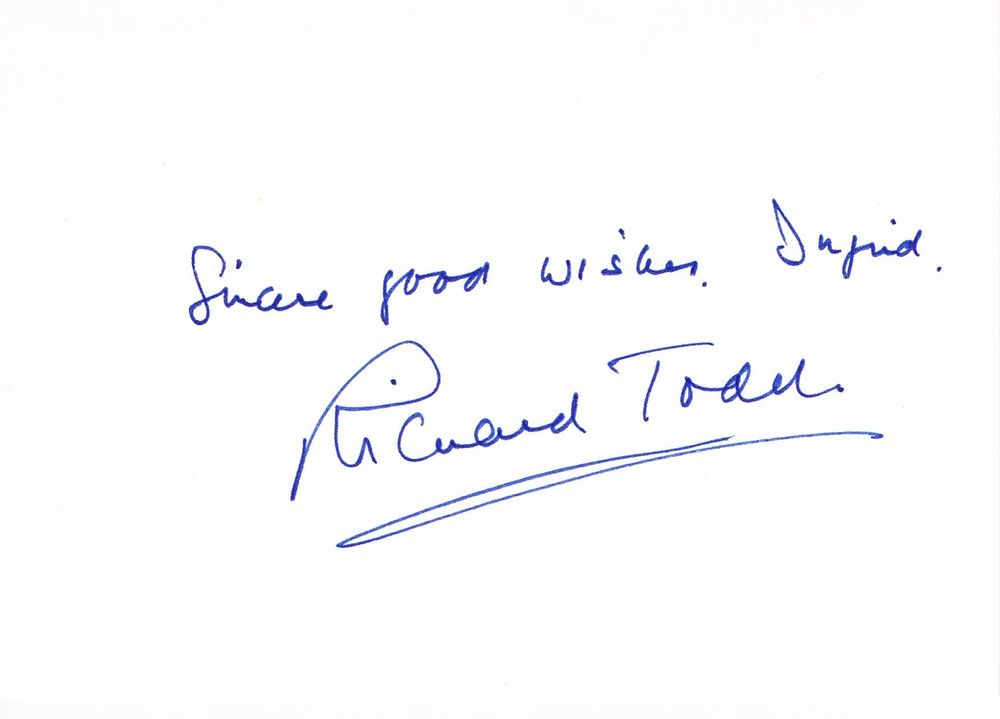 Sincere good wishes. Ingrid.
Richard Todd.